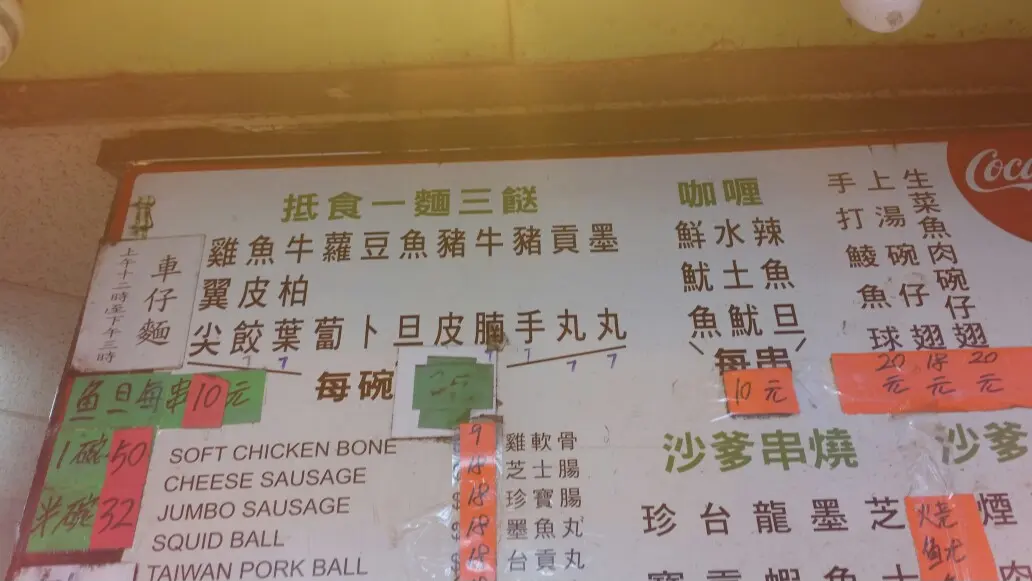 抵食一麵三餸
雞翼尖
魚皮餃
牛柏葉
蘿蔔
豆卜
魚旦
豬皮
牛腩
豬手
貢丸
墨丸
每碗
25
車仔麵
上午十二時至下午三時
魚旦每串10元
1碗50
半碗32
咖喱
鮮魷魚
水土魷
辣魚旦
每串
10元
手打鯪魚球
20元
上湯碗仔翅
18元
生菜魚肉碗仔翅
20元
Coca
SOFT CHICKEN BONE 9 雞軟骨
CHEESE SAUSAGE 18 芝士腸
JUMBO SAUSAGE $18 珍寶腸
SQUID BALL $18 墨魚丸
TAIWAN PORK BALL $18 台貢丸
沙爹串燒
沙爹
珍
台
龍
墨魚
芝士
煙肉
燒